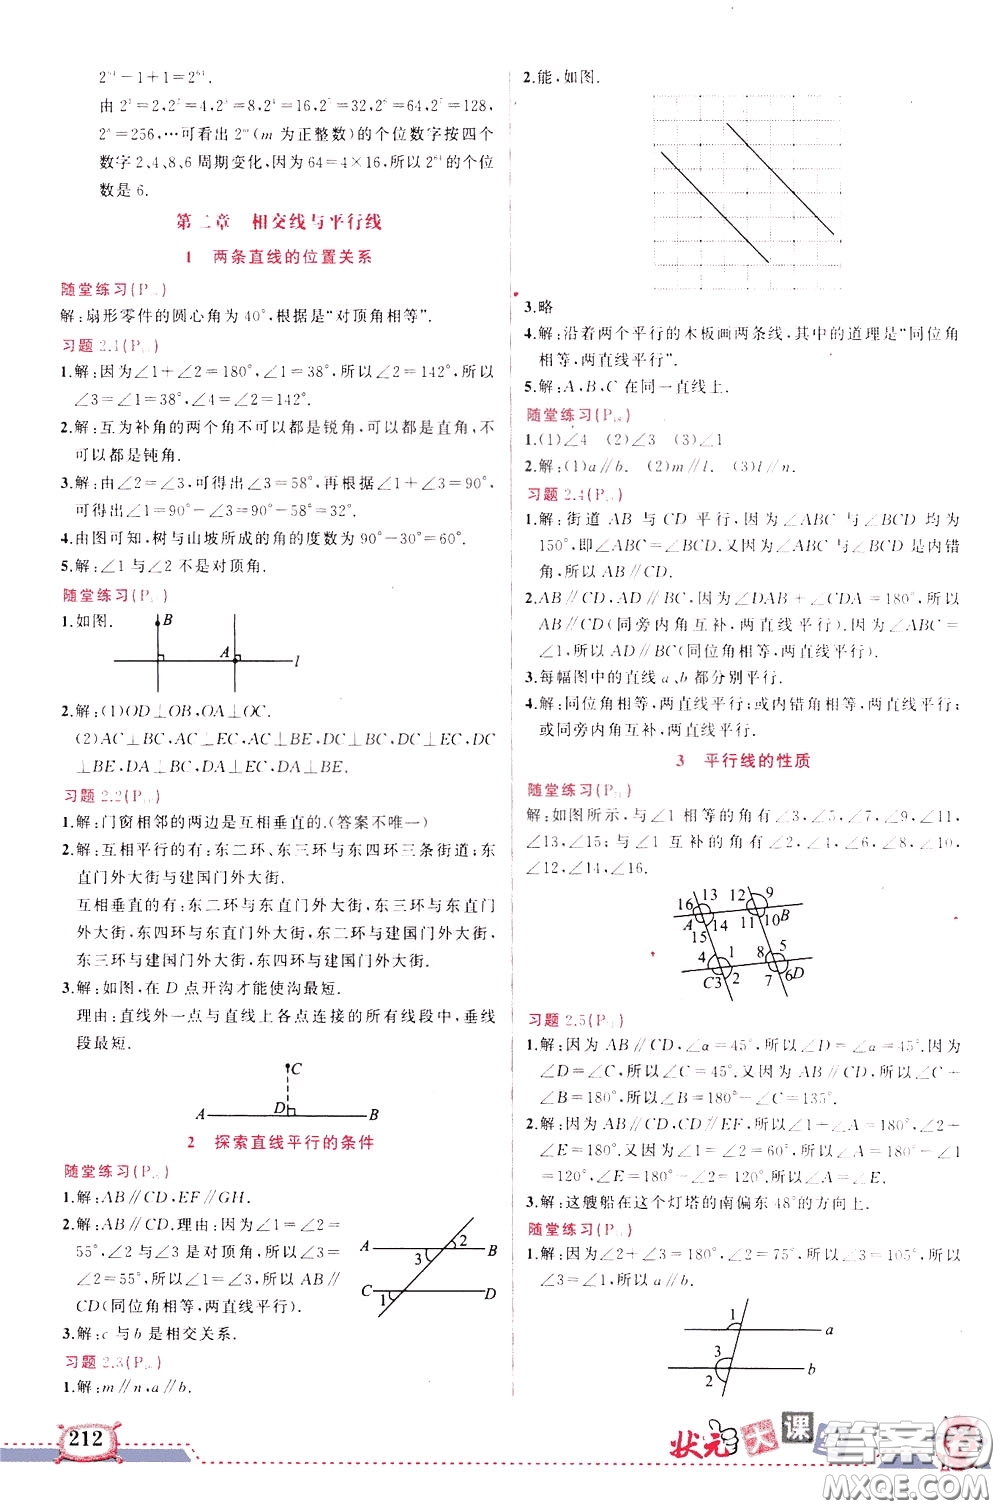 2⁶⁴-1+1=2⁶⁴.
由 2¹=2,2²=4,2³=8,2⁴=16,2⁵=32,2⁶=64,2⁷=128,
2⁸=256,…可看出 2ᵐ(m 为正整数)的个位数字按四个
数字 2、4、8、6 周期变化,因为 64=4×16,所以 2⁶⁴的个位
数是 6.
第二章 相交线与平行线
1 两条直线的位置关系
随堂练习(P
解:扇形零件的圆心角为 40°,根据是“对顶角相等”.
习题 2.1(P
1.解:因为∠1+∠2=180°,∠1=38°,所以∠2=142°,所以
∠3=∠1=38°,∠4=∠2=142°.
2.解:互为补角的两个角不可以都是锐角,可以都是直角,不
可以都是钝角.
3.解:由∠2=∠3,∠2=58°,得∠3=58°,再根据∠1+∠3=90°,
可得出∠1=90°-∠3=90°-58°=32°.
4.由图可知,树与山坡所成的角的度数为 90°-30°=60°.
5.解:∠1 与∠2 不是对顶角.
随堂练习(P
1.如图.
B
A
l
2.解:(1)OD⊥OB,OA⊥OC.
(2)AC⊥BC,AC⊥EC,AC⊥BE,DC⊥BC,DC⊥EC,DC
⊥BE,DA⊥BC,DA⊥EC,DA⊥BE.
习题 2.2(P
1.解:门窗相邻的两边是互相垂直的.(答案不唯一)
2.解:互相平行的有:东二环、东三环与东四环三条街道;东
直门外大街与建国门外大街.
互相垂直的有:东二环与东直门外大街,东三环与东直门外
大街,东四环与东直门外大街,东二环与建国门外大街,
东三环与建国门外大街,东四环与建国门外大街.
3.解:如图,在 D 点开沟才能使沟最短.
理由:直线外一点与直线上各点连接的所有线段中,垂线
段最短.
C
A D B
2 探索直线平行的条件
随堂练习(P
1.解:AB∥CD,EF∥GH.
2.解:AB∥CD.理由:因为∠1=∠2=
55°,∠2 与∠3 是对顶角,所以∠3=
∠2=55°,所以∠1=∠3,所以 AB∥
CD(同位角相等,两直线平行).
A 3 2 B
C 1 D
3.解:c 与 b 是相交关系.
习题 2.3(P
1.解:m∥n,a∥b.
212
2.能,如图.
3.略
4.解:沿着两个平行的木板画两条线,其中的道理是“同位角
相等,两直线平行”.
5.解:A、B、C 在同一直线上.
随堂练习(P
1.(1)∠4 (2)∠3 (3)∠1
2.解:(1)a∥b. (2)m∥l. (3)l∥n.
习题 2.4(P
1.解:街道 AB 与 CD 平行,因为∠ABC 与∠BCD 均为
150°,即∠ABC=∠BCD.又因为∠ABC 与∠BCD 是内错
角,所以 AB∥CD.
2.AB∥CD,AD∥BC,因为∠DAB+∠CDA=180°,所以
AB∥CD(同旁内角互补,两直线平行).因为∠ABC=
∠1,所以 AD∥BC(同位角相等,两直线平行).
3.每幅图中的直线 a、b 都分别平行.
4.解:同位角相等,两直线平行;或内错角相等,两直线平行;
或同旁内角互补,两直线平行.
3 平行线的性质
随堂练习(P
解:如图所示,与∠1 相等的角有∠3,∠5,∠7,∠9,∠11,
∠13,∠15;与∠1 互补的角有∠2,∠4,∠6,∠8,∠10,
∠12,∠14,∠16.
16 13 12 9
A 14 11 10 B
15
4 1 8 5
C 3 2 7 6 D
习题 2.5(P
1.解:因为 AB∥CD,∠α=45°,所以∠D=∠α=45°.因为
∠D=∠C,所以∠C=45°.又因为 AB∥CD,所以∠C+
∠B=180°,所以∠B=180°-∠C=135°.
2.解:因为 AB∥CD,CD∥EF,所以∠1+∠A=180°,∠2+
∠E=180°.又因为∠A=∠1=2∠2=60°,所以∠A=∠1
=120°,∠E=180°-∠2=120°.
3.解:这艘船在这个灯塔的南偏东 48°的方向上.
随堂练习(P
1.解:因为∠2+∠3=180°,∠2=75°,所以∠3=105°,所以
∠1=∠3,所以 a∥b.
1
a
3
2
b
状元大课
答案卷
MXQE.COM